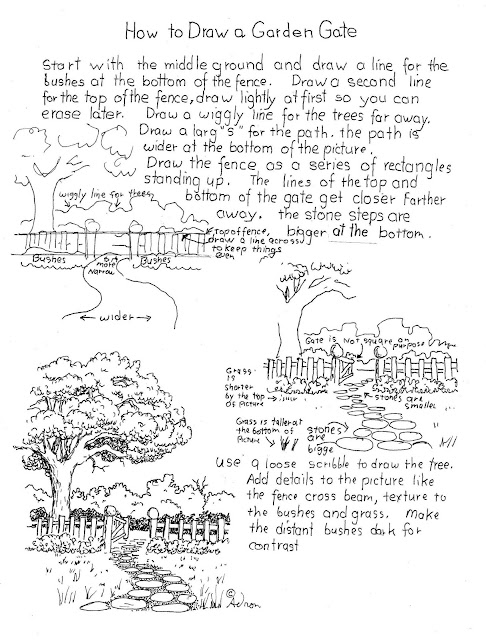 How to Draw a Garden Gate
Start with the middle ground and draw a line for the
bushes at the bottom of the fence. Draw a second line
for the top of the fence, draw lightly at first so you can
erase later. Draw a wiggly line for the trees far away.
Draw a larg "S" for the path. the path is
wider at the bottom of the picture.
Draw the fence as a series of rectangles
standing up. The lines of the top and
bottom of the gate get closer farther
away. the stone steps are
bigger at the bottom.
wiggly line for trees
Top of fence,
draw a line across
to keep things
even
Bushes
more
Narrow
Bushes
← wider →
Gate is Not square on
purpose
Grass
is
shorter
by the top
of picture
stones are
smaller
Grass is taller at
the bottom of
Picture
stones
are
bigge
use a loose scribble to draw the tree.
Add details to the picture like
the fence cross beam, texture to
the bushes and grass. Make
the distant bushes dark for
contrast
© Adron